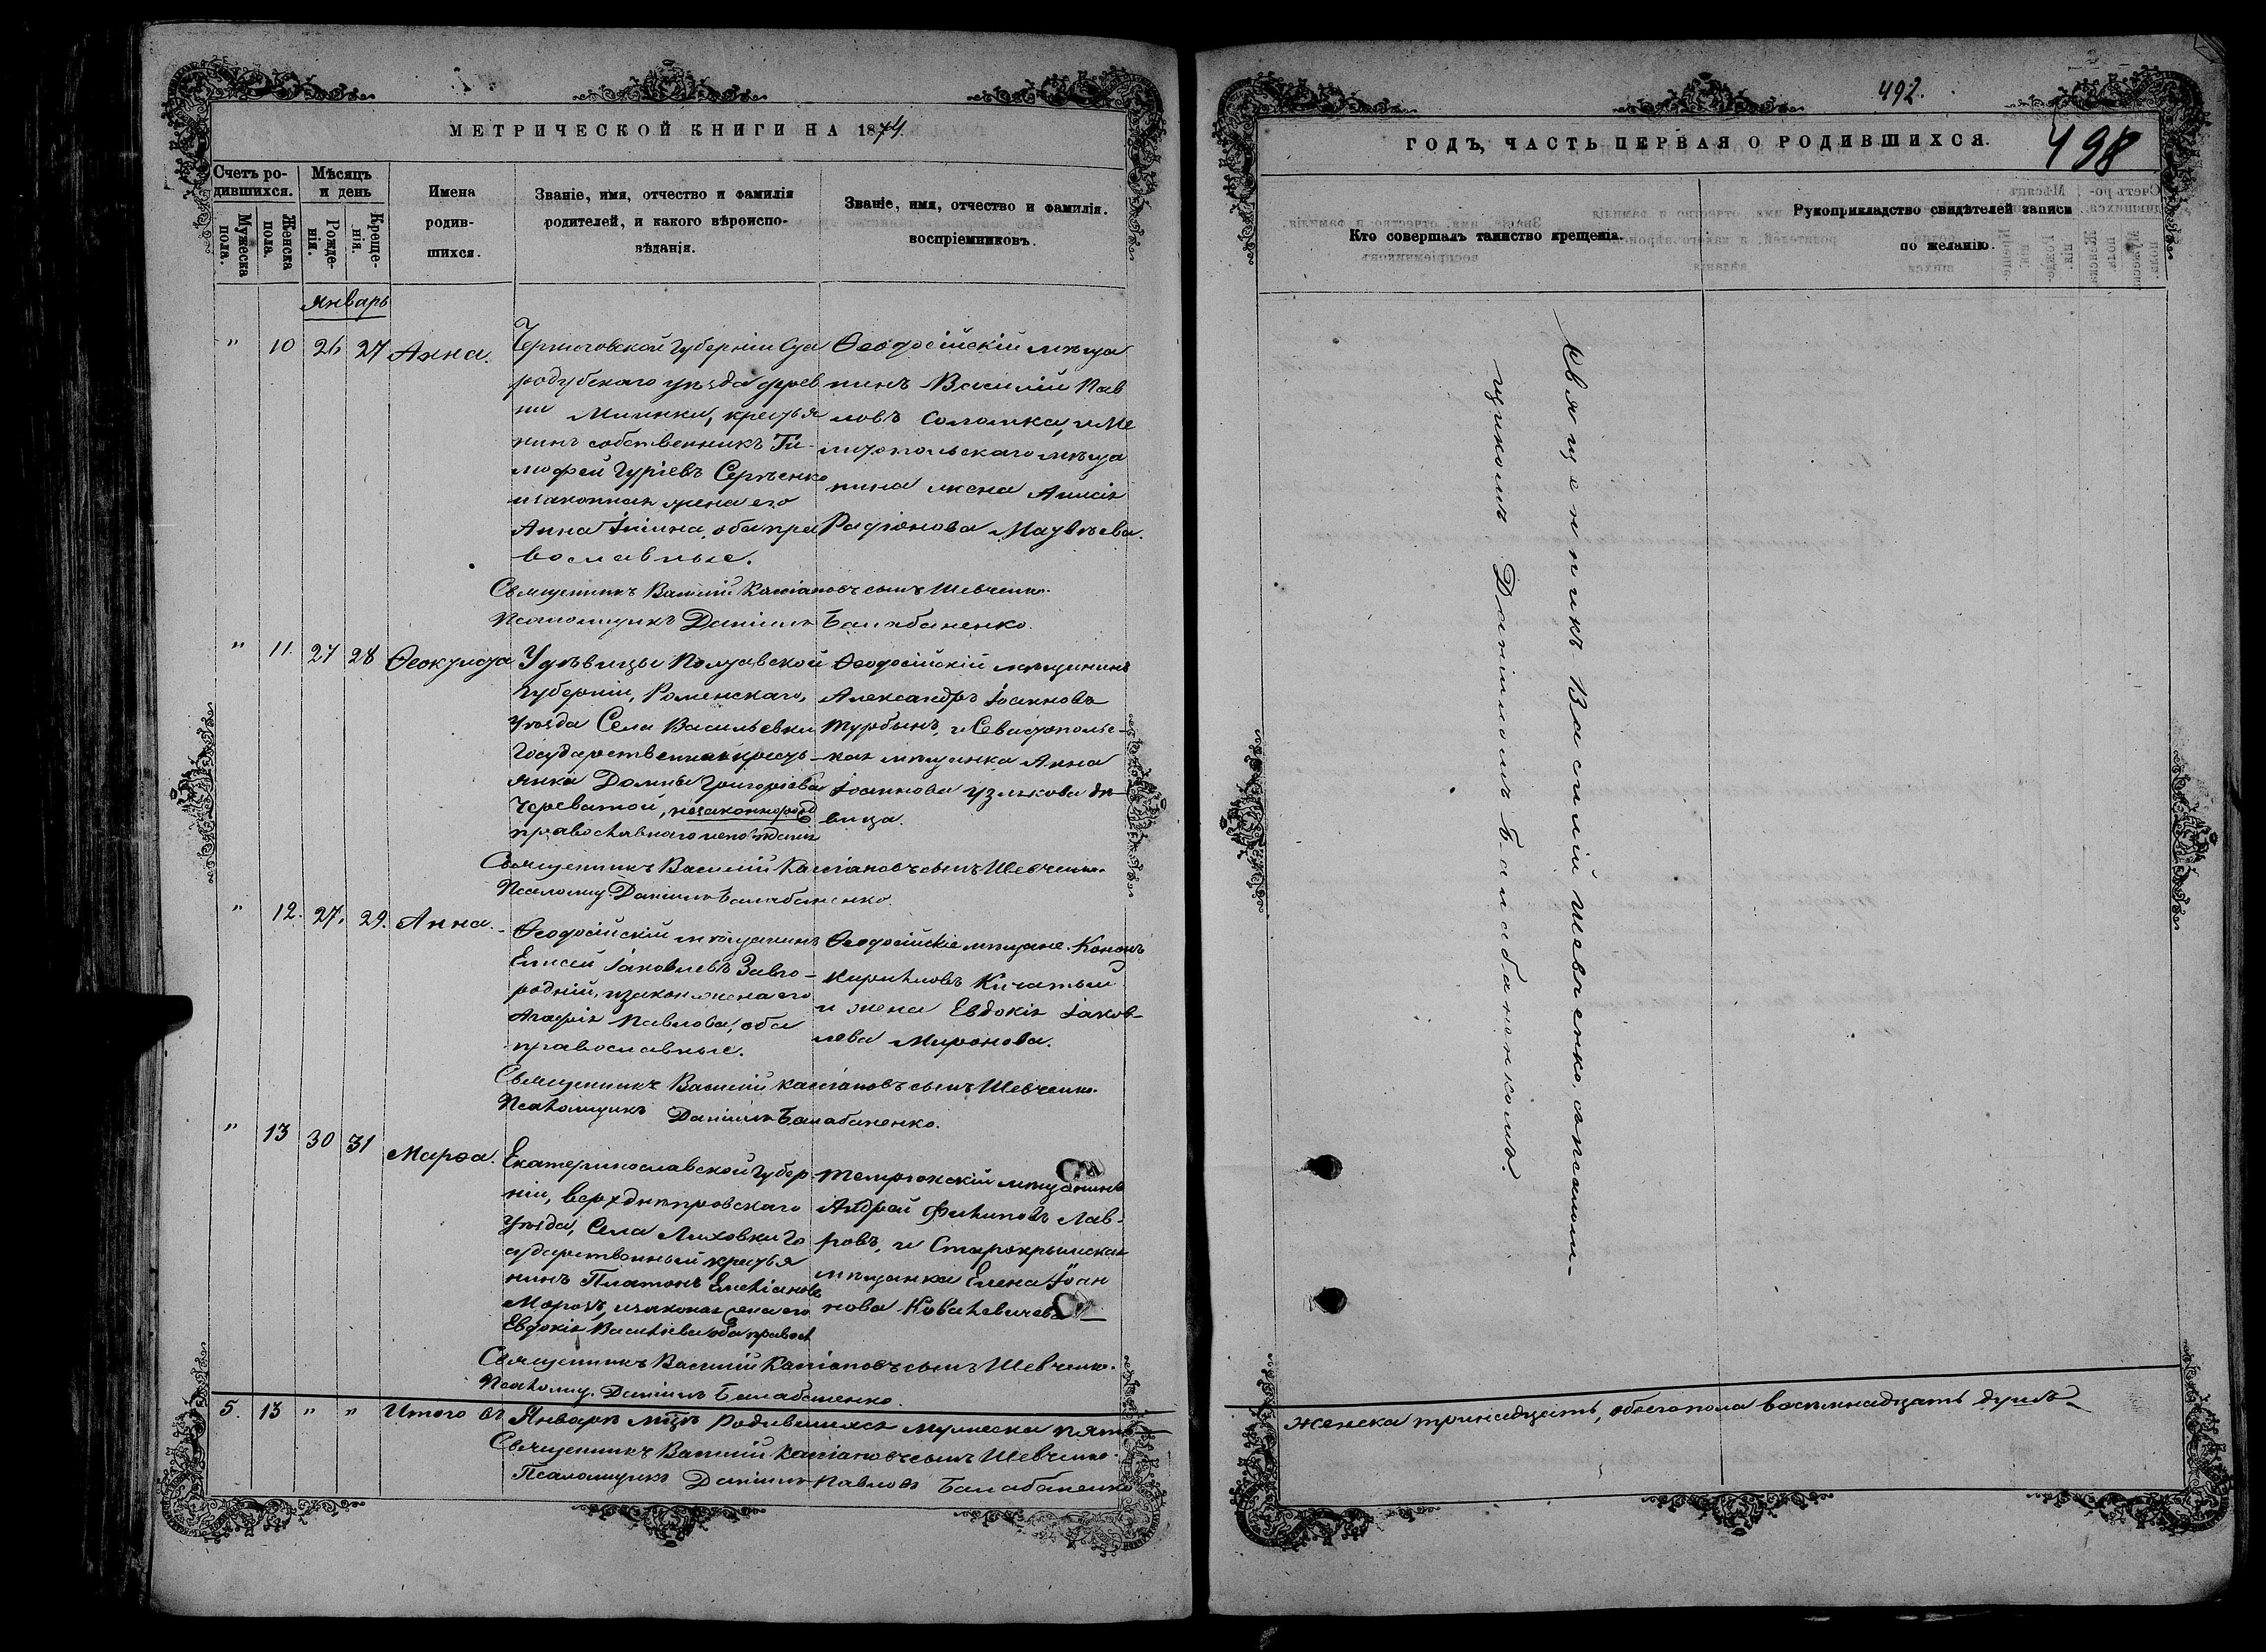 МЕТРИЧЕСКОЙ КНИГИ НА 1874
Счетъ ро-
дившихся.
Мужеска
пола.
Женска
пола.
Мѣсяцъ
и день
Рожде-
нія.
Креще-
нія.
Имена
родив-
шихся.
Званіе, имя, отчество и фамилія
родителей, и какого вѣроиспо-
вѣданія.
Званіе, имя, отчество и фамилія.
воспріемниковъ.
Январь
" 10 26 27 Анна.
Черниговской Губерніи Ста
родубскаго уѣзда дерев
ни крестья
нинъ собственникъ Ти-
мофей Гуріевъ Сергѣенко
и законная жена его
Анна Iлiина, оба пра
вославные.
Ѳеодосійскій мѣща
нинъ Василій Пав
ловъ Соломка, и Ме
литопольскаго мѣща
нина жена Анисія
Радіонова Матвѣева.
Священникъ Василій Кассіановъ сынъ Шевченко.
Псаломщикъ Даніилъ Балабаненко.
" 11. 27 28 Ѳеоктиста
У дѣвицы Полтавской
Губерніи, Роменскаго,
Уѣзда Села Васильевки
Государственная кресть-
янка Домны Григоріевой
Череватой, незаконнорожд
православнаго исповѣданія
Ѳеодосійскій мѣщанинъ
Александръ Іоанновъ
Турбинъ, и Севастопольс-
кая мѣщанка Анна
Іоаннова Узлькова дѣ-
вица.
Священникъ Василій Кассіановъ сынъ Шевченко.
Псаломщ Даніилъ Балабаненко.
" 12. 27. 29. Анна.
Ѳеодосійскій мѣщанинъ
Елисей Іаковлевъ Заво-
родній, и закон жена его
Агафія Павлова, оба
православные.
Ѳеодосійскіе мѣщане. Кононъ
Кирилловъ Кичатый
и жена Евдокія Іаков-
лева Миронова.
Священникъ Василій Кассіановъ сынъ Шевченко.
Псаломщикъ Даніилъ Балабаненко.
" 13 30 31 Марѳа.
Екатеринославской Губер
ніи, верхднѣпровскаго
Уѣзда, Села Лиховки Го
сударственный крестья
нинъ Платонъ Емеліановъ
Морозъ, и законая жена его
Евдокія Василіева оба правосл
Темрюкскій мѣщанинъ
Андрей Филиповъ Лав-
ровъ, и Старокрымская
мѣщанка Елена Іоан
нова Ковалевичева
Священникъ Василій Кассіановъ сынъ Шевченко.
Псаломщ. Даніилъ Балабаненко.
5. 13 " " Итого въ Январѣ мцѣ родившихся мужеска пять
Священникъ Василій Кассіановъ сынъ Шевченко.
Псаломщикъ Даніилъ Павловъ Балабаненко
492.
498
ГОДЪ, ЧАСТЬ ПЕРВАЯ О РОДИВШИХСЯ.
Кто совершалъ таинство крещенія.
Рукоприкладство свидѣтелей записи
по желанію.
Священникъ Василій Шевченко, съ псалом-
щикомъ Даніиломъ Балабаненкомъ.
женска тринадцать, обоего пола восемнадцать душъ